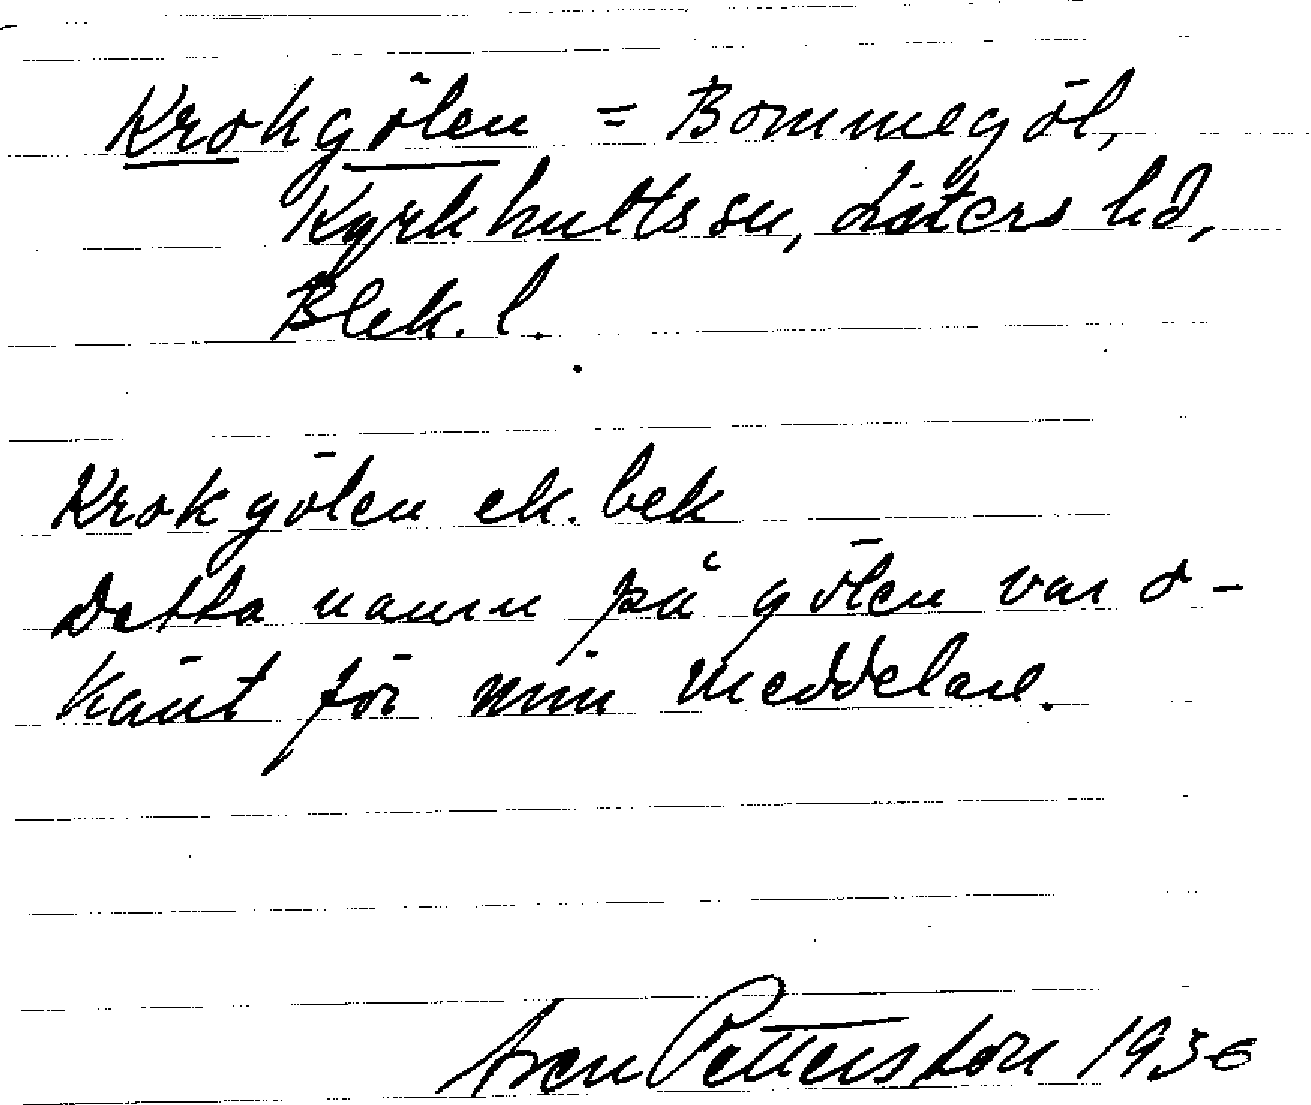 Krokgölen = Bommegöl,
Kyrkhults sn, Listers hd,
Blek. l.
Krokgölen ek. bek
Detta namn på gölen var o-
känt för min meddelare.
Sven Petterson 1936